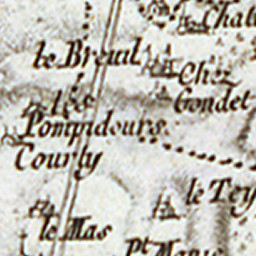 Chat
le Breuil
Chez
Gondet
les
Pompidours.
Courly
le Tey
le Mas
Pt. Maris